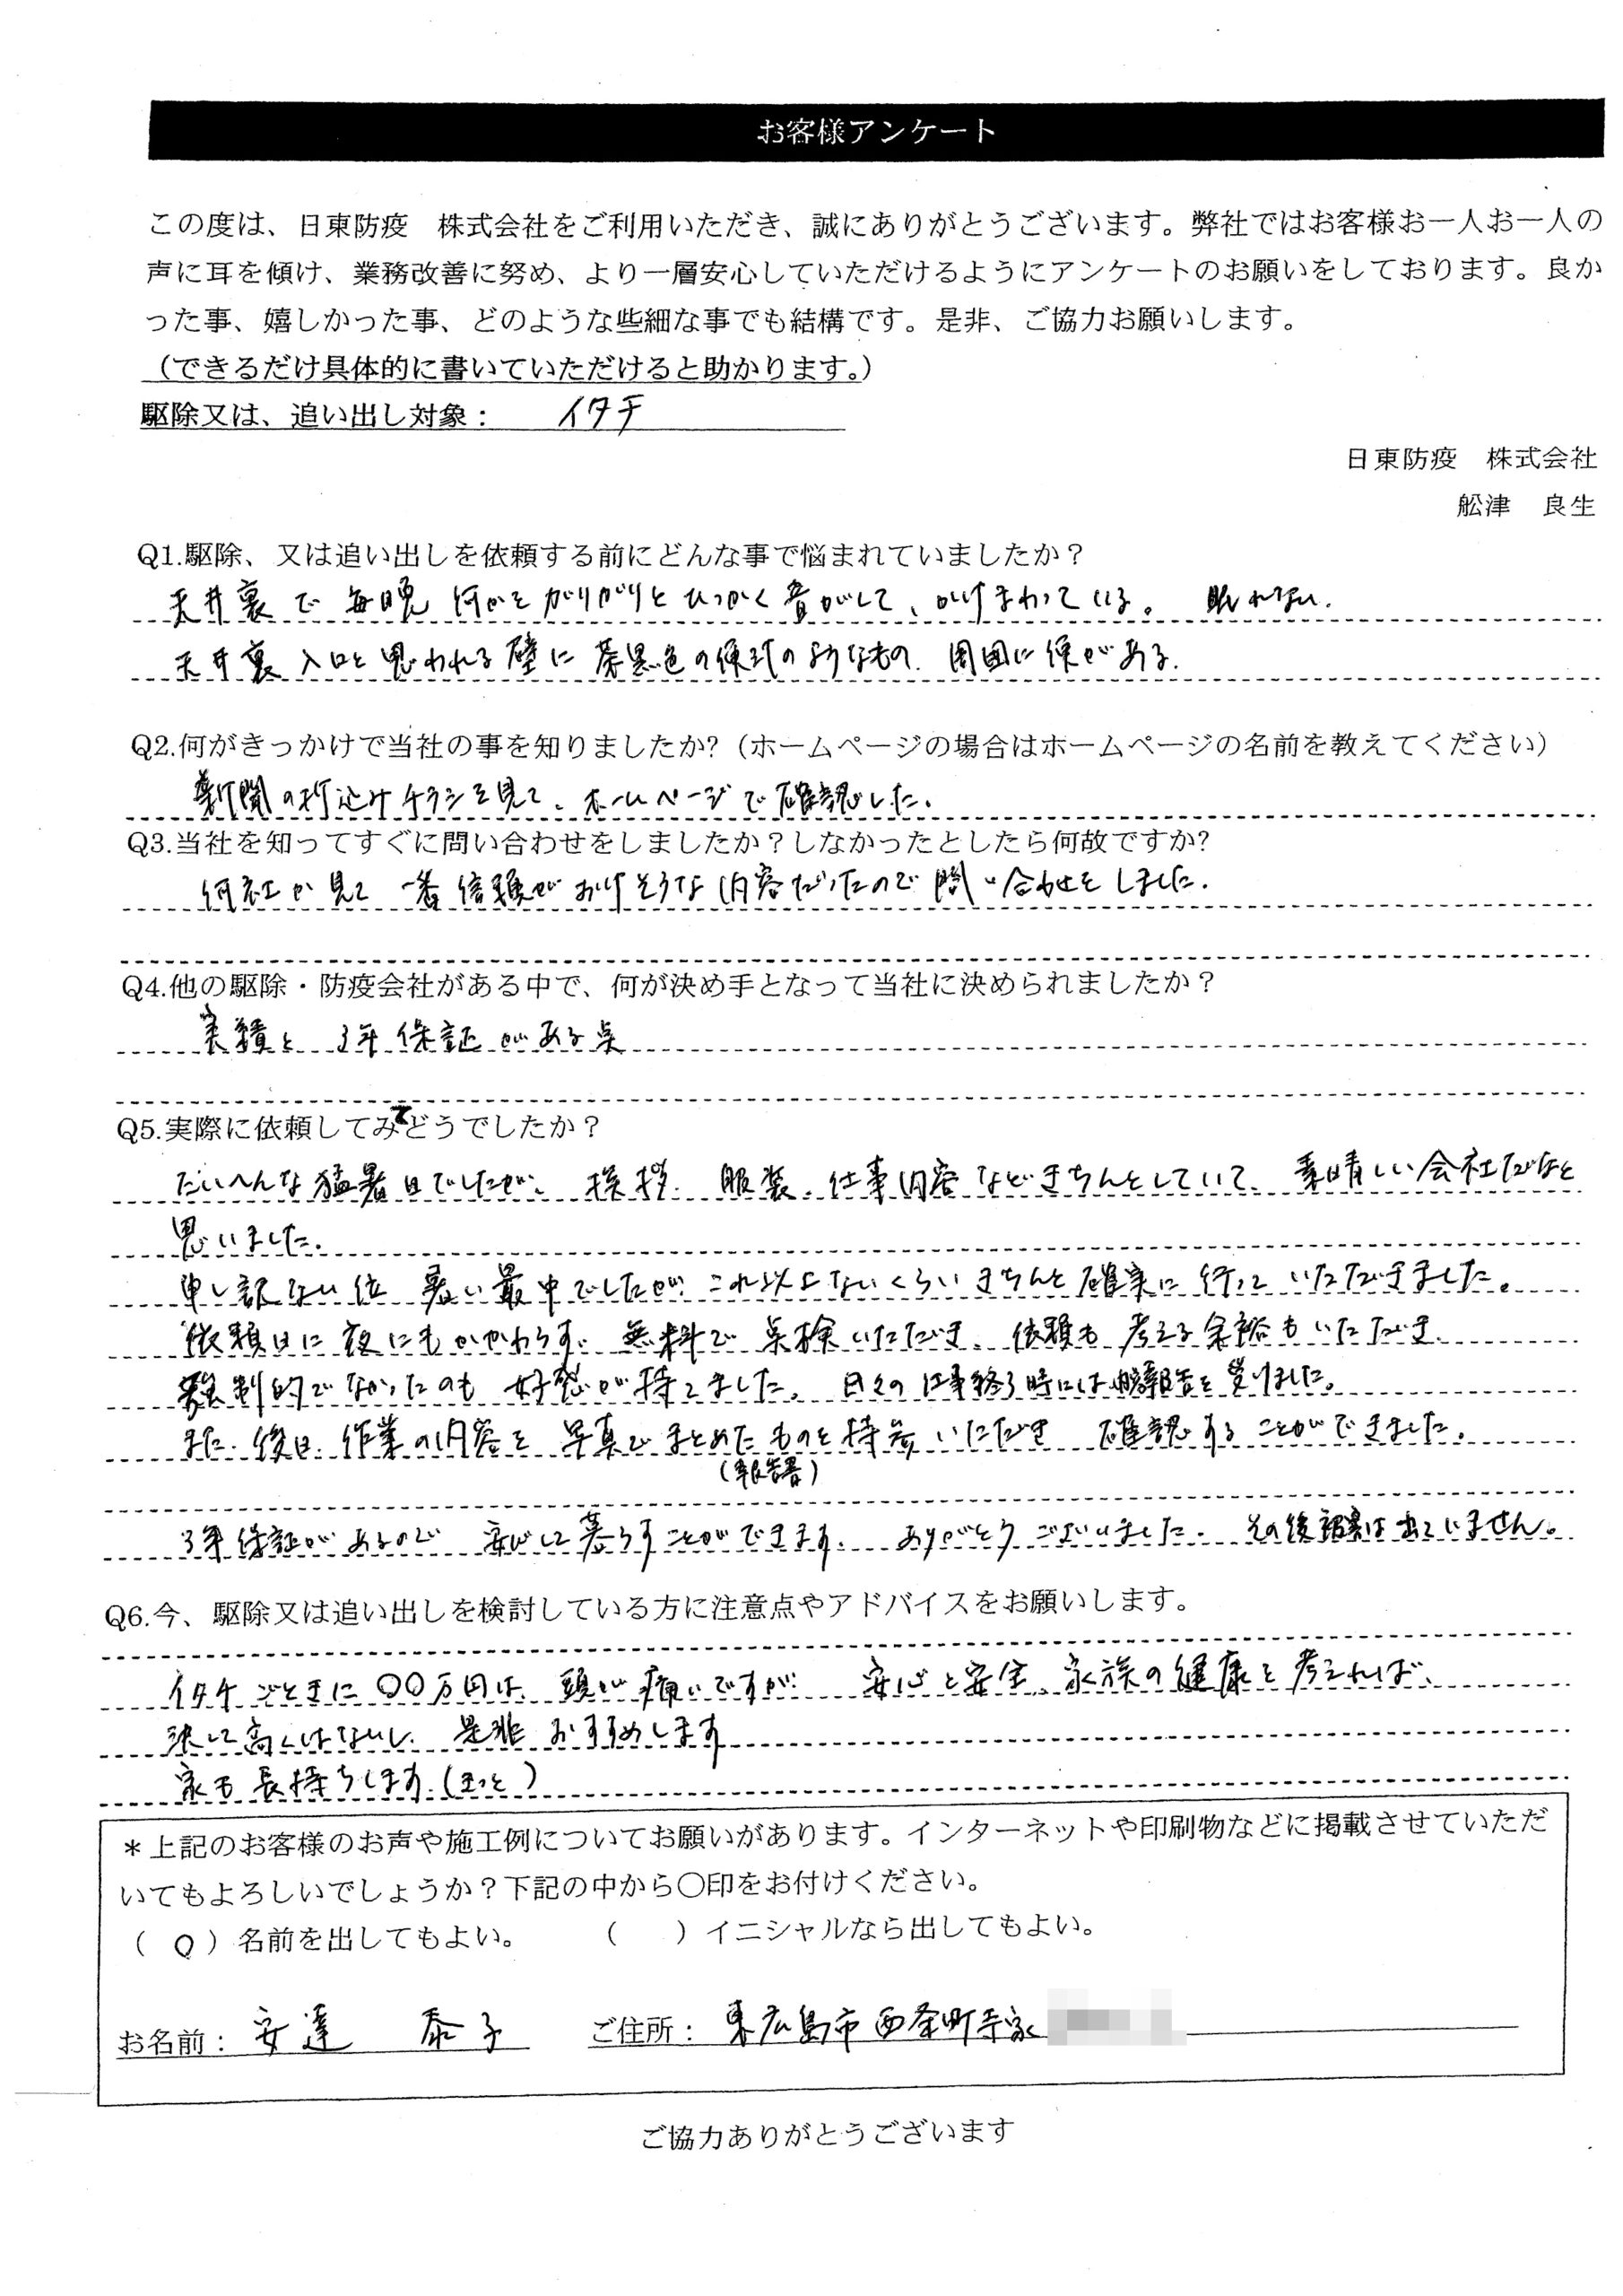 お客様アンケート
この度は、日東防疫　株式会社をご利用いただき、誠にありがとうございます。弊社ではお客様お一人お一人の
声に耳を傾け、業務改善に努め、より一層安心していただけるようにアンケートのお願いをしております。良か
った事、嬉しかった事、どのような些細な事でも結構です。是非、ご協力お願いします。
（できるだけ具体的に書いていただけると助かります。）
駆除又は、追い出し対象：　イタチ
日東防疫　株式会社
舩津　良生
Q1.駆除、又は追い出しを依頼する前にどんな事で悩まれていましたか？
天井裏で毎晩何かをガリガリとひっかく音がして、かけまわっている。　眠れない.
天井裏入口と思われる壁に茶黒色の のようなもの、周囲に がある.
Q2.何がきっかけで当社の事を知りましたか?（ホームページの場合はホームページの名前を教えてください）
新聞の折込みチラシを見て、ホームページで確認した.
Q3.当社を知ってすぐに問い合わせをしましたか？しなかったとしたら何故ですか?
何社か見て一番信頼がおけそうな内容だったので問い合わせをしました.
Q4.他の駆除・防疫会社がある中で、何が決め手となって当社に決められましたか？
実績と3年保証がある点
Q5.実際に依頼してみてどうでしたか？
たいへんな猛暑日でしたが、挨拶、服装、仕事内容などきちんとしていて、素晴しい会社だなと
思いました.
申し訳ない位　暑い最中でしたが、これ以上ないくらいきちんと確実に行っていただきました。
依頼日に夜にもかかわらず、無料で点検いただき、依頼も考える余裕もいただき、
強制的でなかったのも好感が持てました。日々の仕事終了時には 報告を受けました。
また、後日、作業の内容を写真でまとめたものを持参いただき　確認することができました.
（報告書）
3年保証があるので　安心して暮らすことができます、ありがとうございました.　その後被害は出ていません。
Q6.今、駆除又は追い出しを検討している方に注意点やアドバイスをお願いします。
イタチごときに〇〇万円は、頭が痛いですが、安心と安全、家族の健康を考えれば、
決して高くはないし、是非おすすめします
家も長持ちします.（きっと）
＊上記のお客様のお声や施工例についてお願いがあります。インターネットや印刷物などに掲載させていただ
いてもよろしいでしょうか？下記の中から〇印をお付けください。
（ 〇 ）名前を出してもよい。　　（　　）イニシャルなら出してもよい。
お名前：安達　泰子　ご住所：東広島市西条町寺家
ご協力ありがとうございます